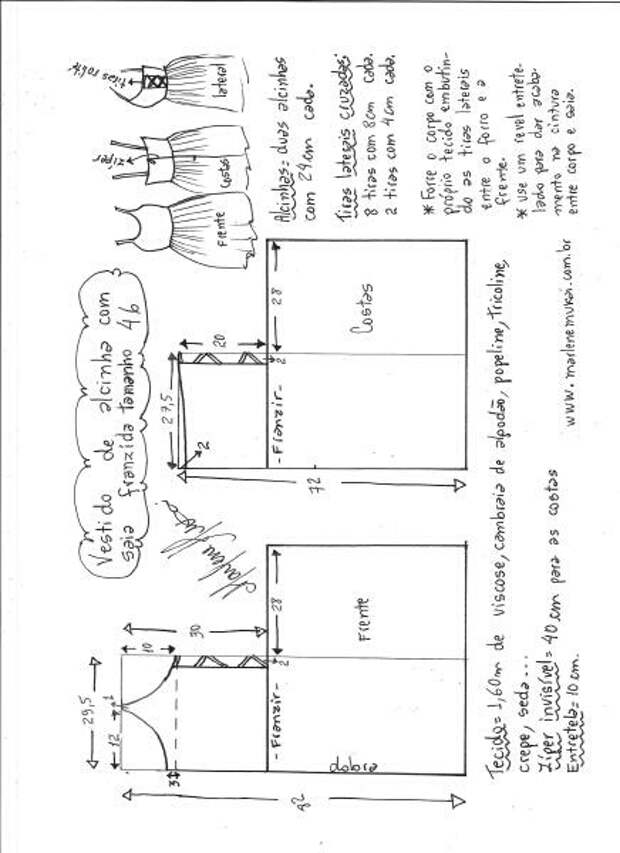 Vestido de alcinha com
saia franzida tamanho 46
Frente
Costas
zíper
lateral
Alcinhas = duas alcinhas
com 24cm cada.
Tiras laterais cruzadas:
8 tiras com 8cm cada.
2 tiras com 4cm cada.
* Forre o corpo com o
próprio tecido embutin-
do as tiras laterais
entre o forro e a
frente.
* Use um revel entrete-
lado para dar acaba-
mento na cintura
entre corpo e saia.
29,5
12
1
10
30
3
82
-Franzir-
2
28
Frente
dobra
27,5
2
20
72
-Franzir-
2
28
Costas
Tecido = 1,60m de viscose, cambraia de algodão, popeline, tricoline,
crepe, seda...
Zíper invisível = 40cm para as costas
Entretela = 10cm.
www.marlenemukai.com.br